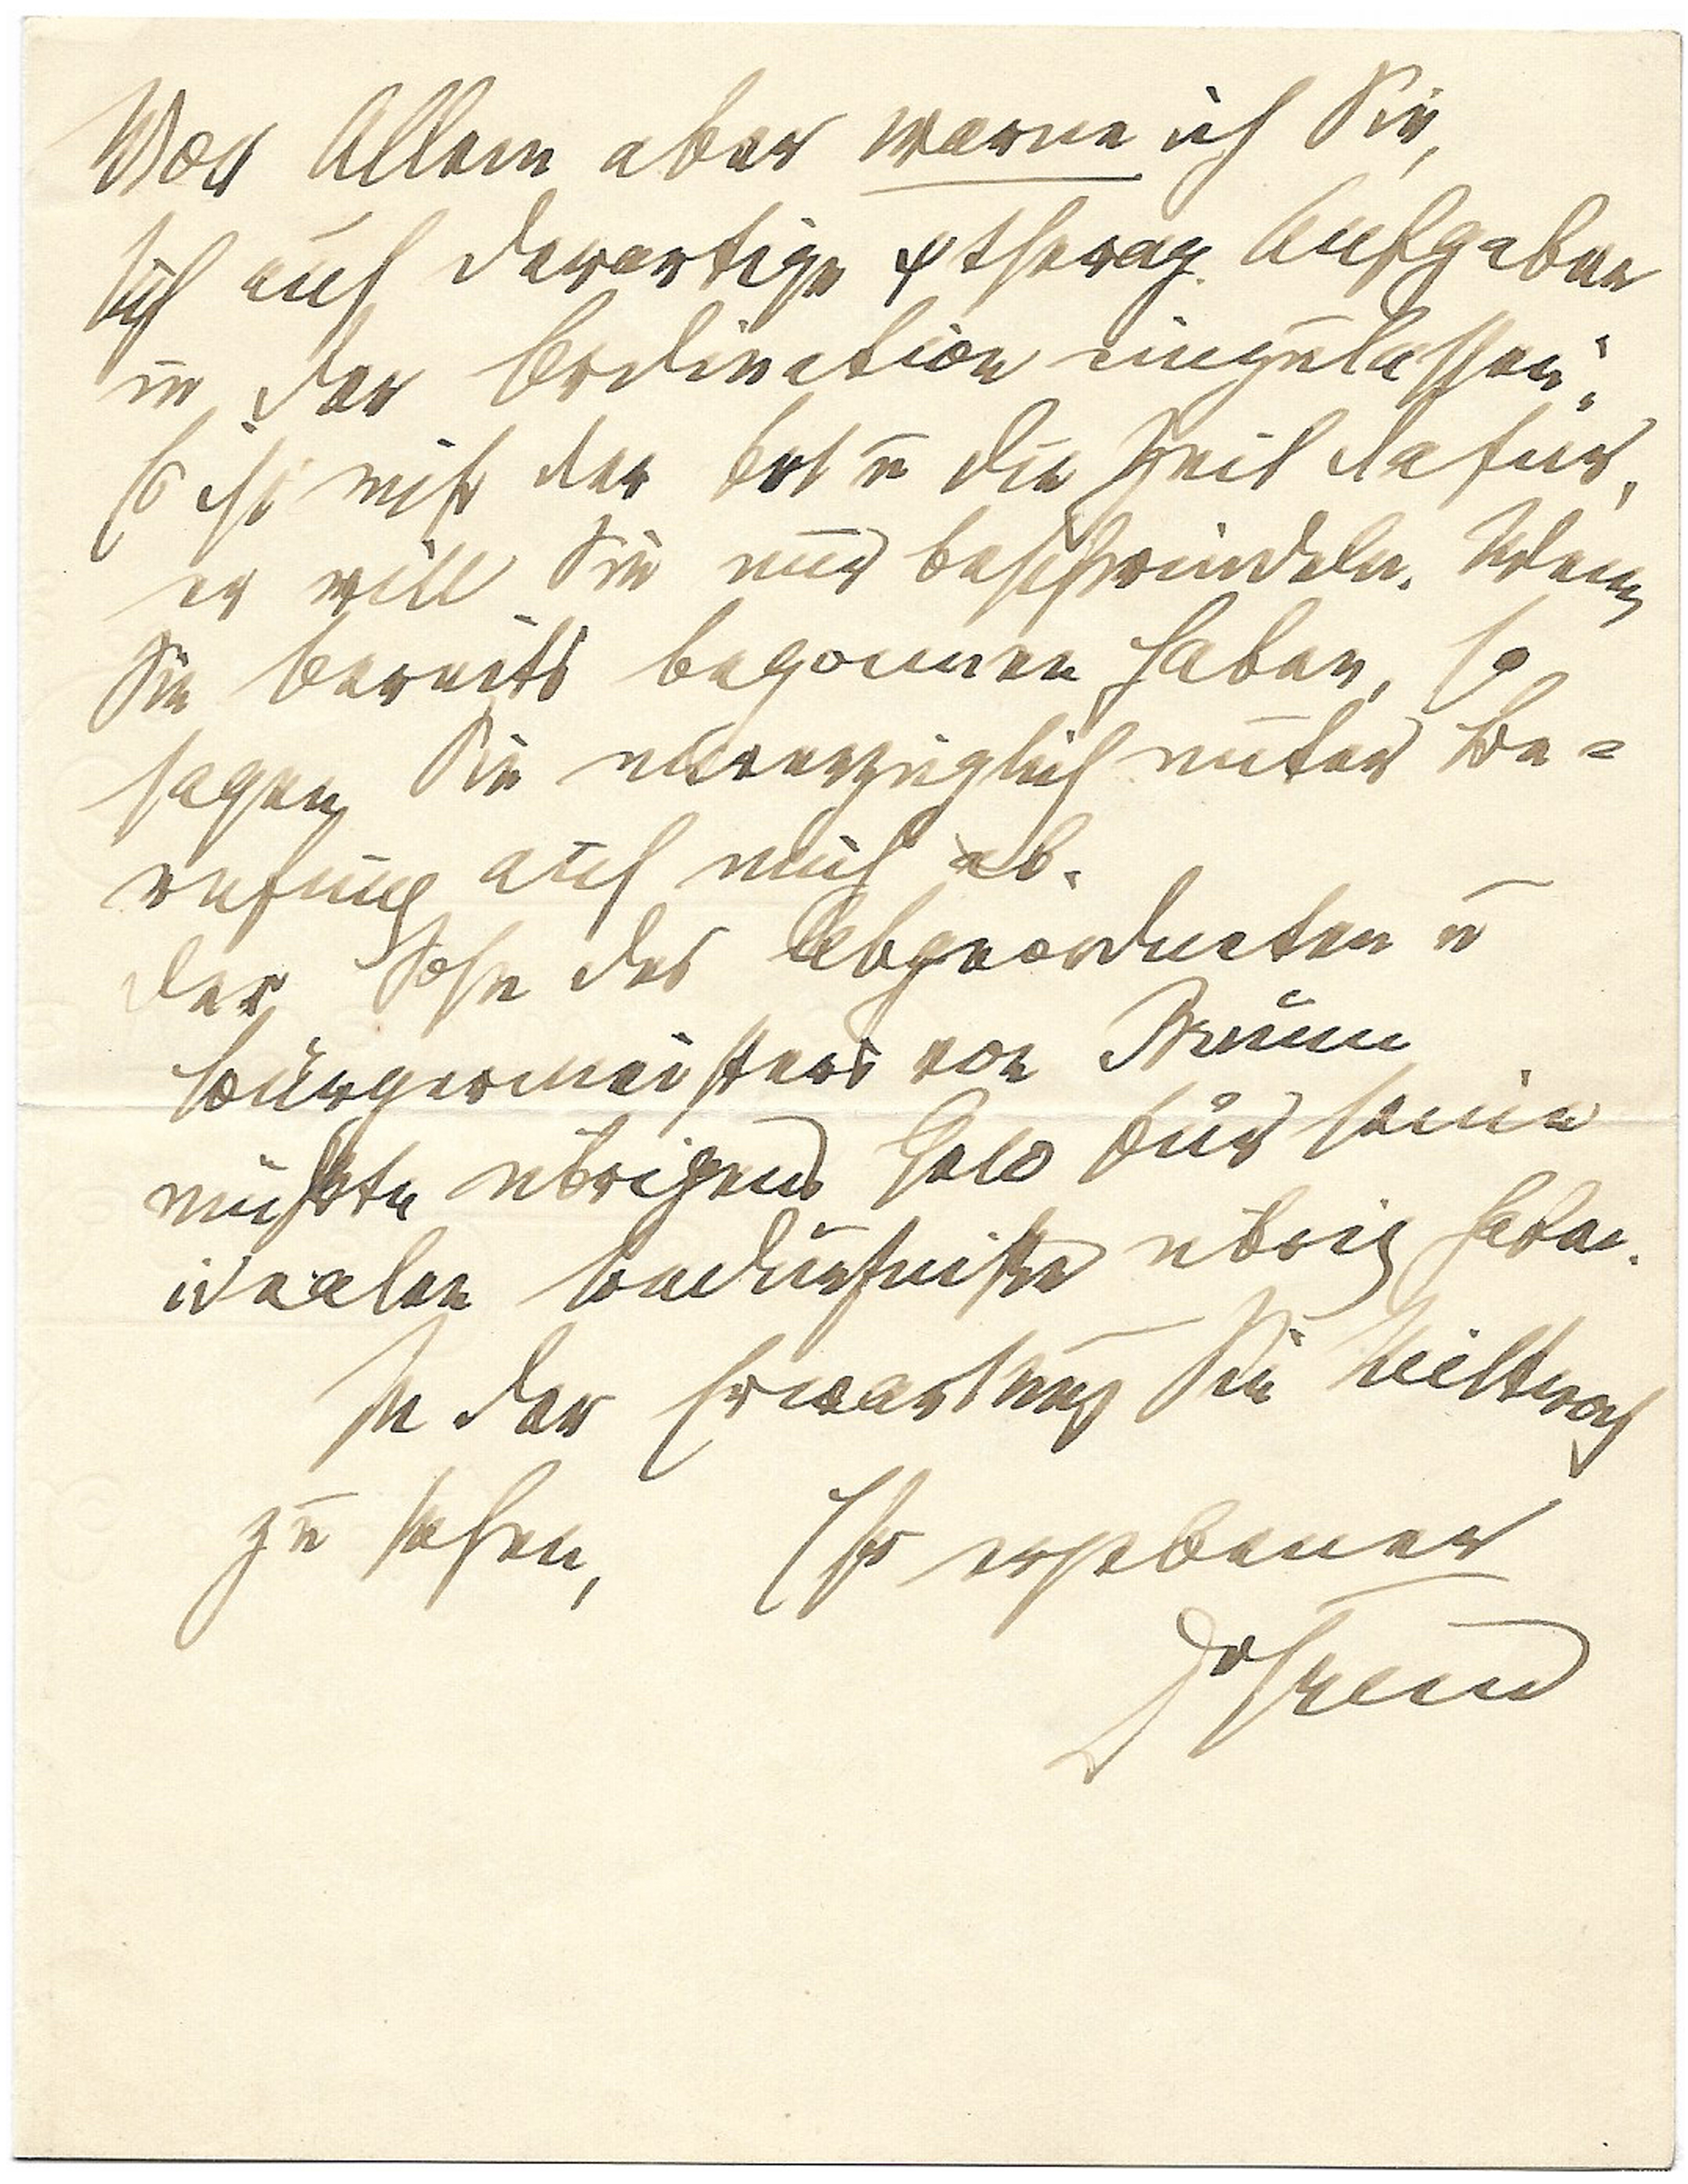 Vor Allem aber warne ich Sie,
sich auf derartige ψtherap. Aufgaben
in der Ordination einzulassen;
Es ist nicht der Ort u die Zeit dafür,
er will Sie nur beschwindeln. Wenn
Sie bereits begonnen haben, so
sagen Sie unverzüglich unter Be-
rufung auf mich ab.
Der Sohn des Abgeordneten u
Bürgermeisters von
müßte übrigens Geld für seine
idealen Bedürfnisse übrig haben.
In der Erwartung Sie Mittwoch
zu sehen, Ihr ergebener
DrFreud